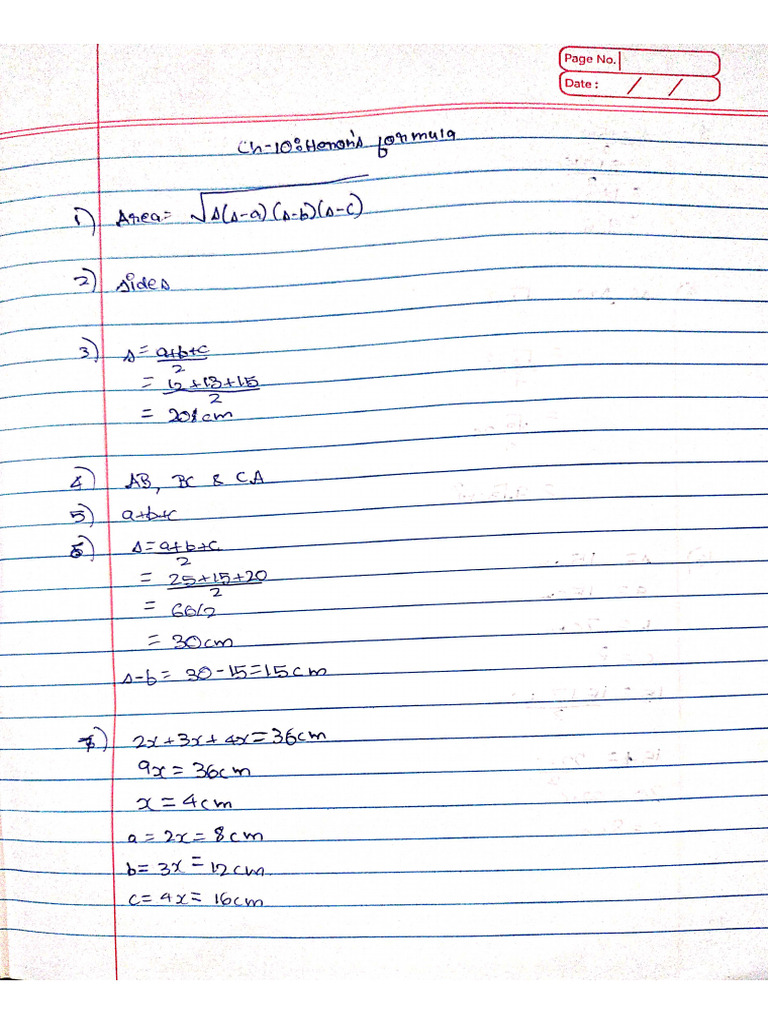 Page No.
Date : / /
Ch-10: Heron's formula
1) Area = √s(s-a)(s-b)(s-c)
2) sides
3) s = a+b+c
2
= 12+13+15
2
= 20cm
4) AB, BC & CA
5) a+b+c
6) s = a+b+c
2
= 25+15+20
2
= 60/2
= 30cm
s-b = 30-15=15cm
7) 2x+3x+4x=36cm
9x = 36cm
x = 4cm
a = 2x = 8cm
b = 3x = 12cm
c = 4x = 16cm